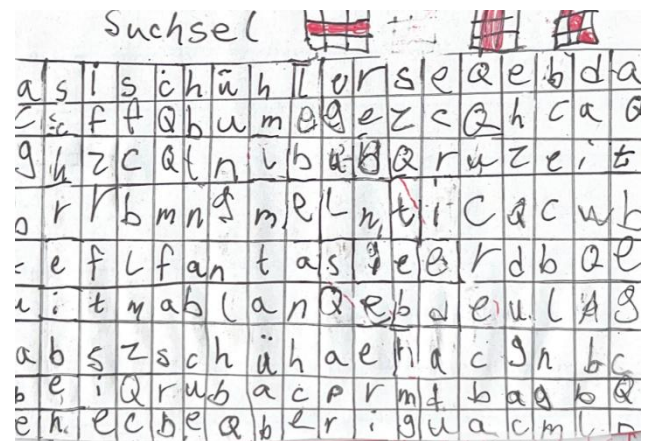 Suchsel
a s i s c h ü h l o r s e Q e b d a
f f Q b u m e g e z c Q h c a Q
g h z c Q t n i b u b Q r u z e i t
r r b m n g m e l n t i c a c w b
e f l f a n t a s i e e r d b Q e
i t m a b l a n Q e b d e u l A g
a b s z s c h ü h a e n a c g n b c
b e i Q r u b a c e r m t b a g b Q
e h e c b e Q b e r i g u a c m l n